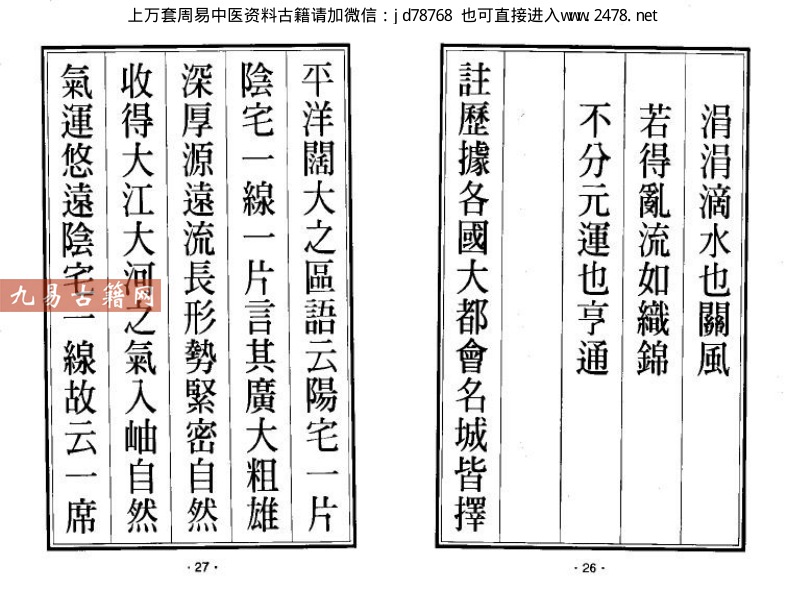 上万套周易中医资料古籍请加微信：jd78768 也可直接进入www.2478.net
涓涓滴水也關風
若得亂流如織錦
不分元運也亨通
註歷據各國大都會名城皆擇
·26·
平洋闊大之區語云陽宅一片
陰宅一線一片言其廣大粗雄
深厚源遠流長形勢緊密自然
收得大江大河之氣入岫自然
氣運悠遠陰宅一線故云一席
·27·
九易古籍网